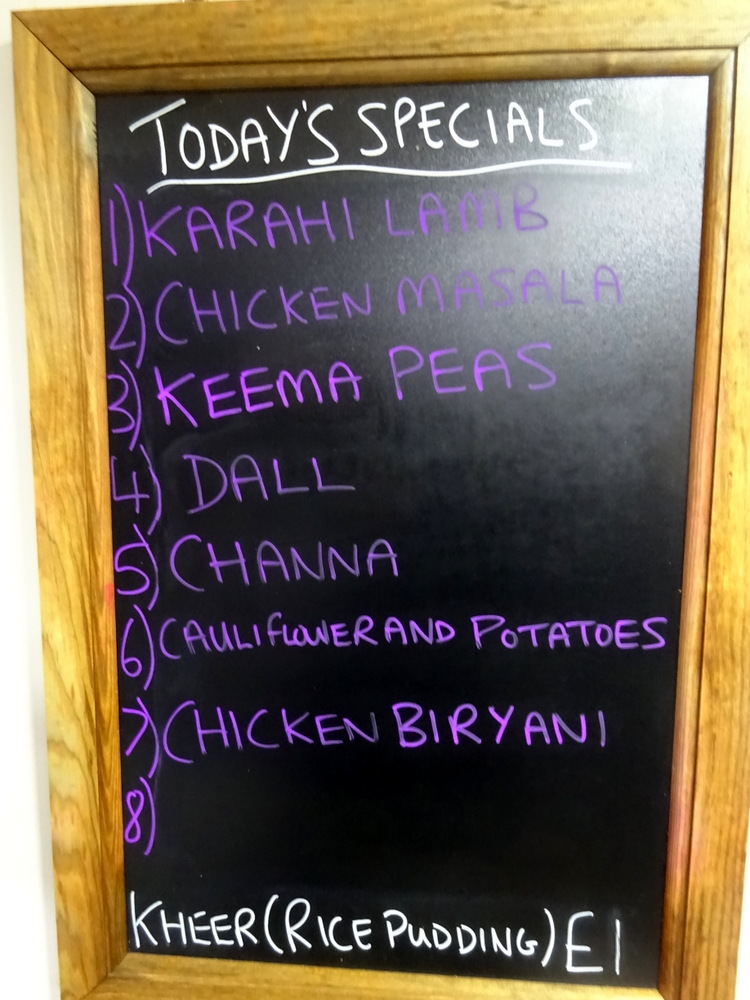 TODAY'S SPECIALS
1) KARAHI LAMB
2) CHICKEN MASALA
3) KEEMA PEAS
4) DALL
5) CHANNA
6) CAULIFLOWER AND POTATOES
7) CHICKEN BIRYANI
8)
KHEER (RICE PUDDING) £1